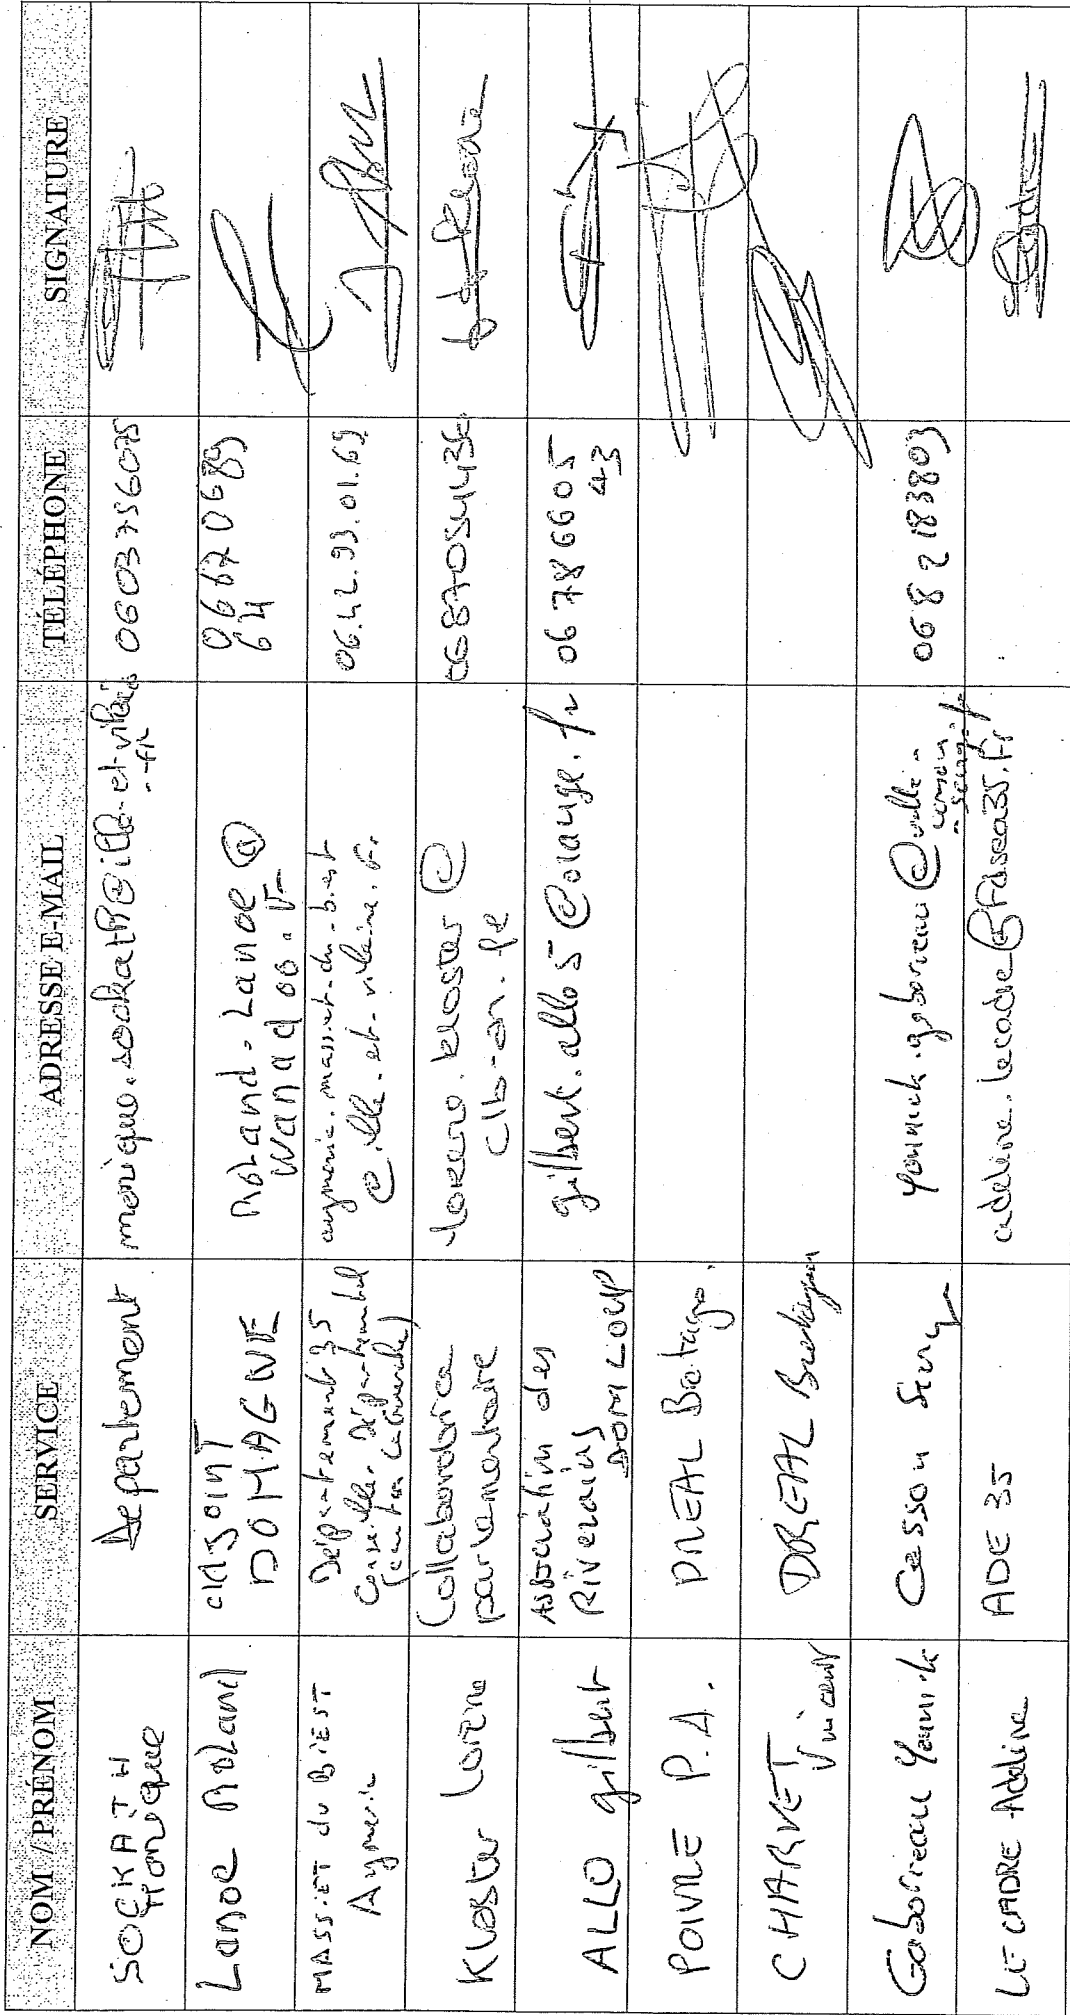 NOM / PRÉNOM SERVICE ADRESSE E-MAIL TÉLÉPHONE SIGNATURE
SOCKATH
Monique
Département
monique.sockath@ille-et-vilaine
.fr
0603756075
Lanoe Roland
adjoint
DOMAGNE
Roland.Lanoe @
wanadoo.fr
06670689
64
MASSIET du BIEST
Aymeric
Département 35
Conseiller départemental
aymeric.massiet-du-biest
@ille-et-vilaine.fr
06.42.93.01.69
Kloster Lorene
Collaboratrice
parlementaire
lorene.kloster @
clb-an.fr
0687054436
ALLO gilbert
Association des
Riverains
DOMLOUP
gilbert.allo5@orange.fr
06 78 66 05
43
POIVRE P.A.
DREAL Bretagne.
CHARVET
Vincent
DREAL Bretagne
Gaborieau Yannick
Cesson Sevigné
yannick.gaborieau@ville-
cesson
-sevigne.fr
06 82 183803
LE CADRE Adeline
ADE 35
adeline.lecadre@fdsea35.fr